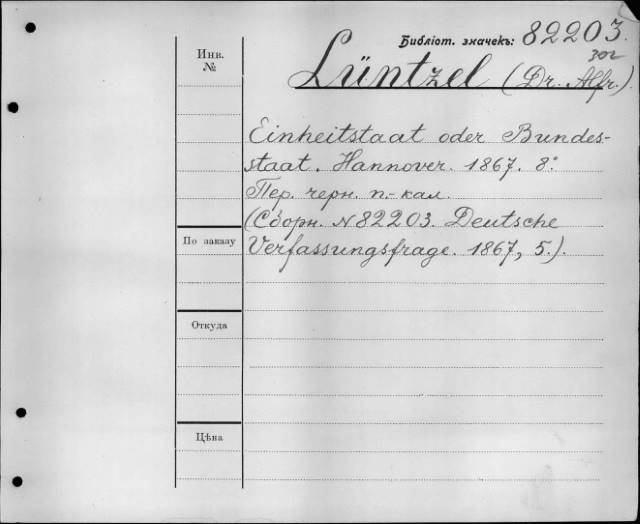 Библіот. значекъ: 82203.
Инв.
№
Lüntzel (Dr. Alfr.).
Einheitstaat oder Bundes-
staat. Hannover. 1867. 8°.
Пер. черн. п.-кал.
(Сборн. №82203. Deutsche
По заказу
Verfassungsfrage. 1867, 5.).
Откуда
Цѣна